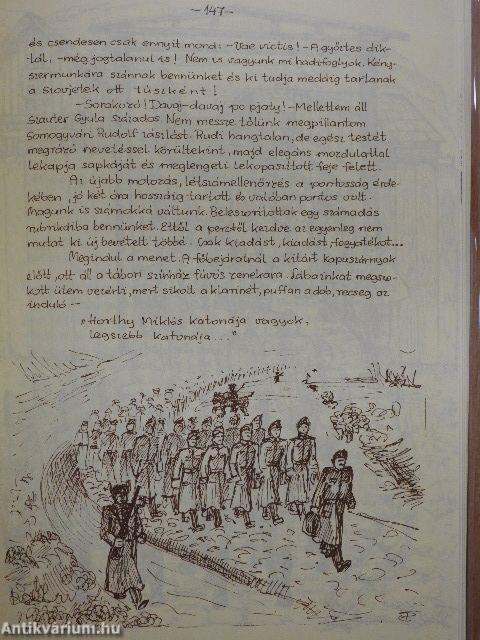 -147-
és csendesen csak ennyit mond: - Vae victis! - A győztes dik-
tál, - még jogtalanul is! Nem is vagyunk mi hadifoglyok. Kény-
szermunkára szánnak bennünket és ki tudja meddig tartanak
a szovjetek ott túszként!
- Sorakozó! Davaj-davaj po pjaty! - Mellettem áll
Szauter Gyula százados. Nem messze tőlünk megpillantom
Somogyvári Rudolf zászlóst. Rudi hangtalan, de egész testét
megrázó nevetéssel körültekint, majd elegáns mozdulattal
lekapja sapkáját és meglengeti lekopaszított feje felett.
Az újabb motozás, létszámellenőrzés a pontosság érde-
kében, jó két óra hosszáig tartott és valóban pontos volt.
Magunk is számokká váltunk. Beleszorítottak egy számadás
rubrikáiba bennünket. Ettől a perctől kezdve az egyenleg nem
mutat ki új bevételt többé. Csak kiadást, kiadást, fogyatékot...
Megindul a menet. A főbejáratnál a kitárt kapuszárnyak
előtt, ott áll a tábori színház fúvós zenekara. Lábainkat megszo-
kott ütem vezérli, mert sikolt a klarinét, puffan a dob, recseg az
induló --
"Horthy Miklós katonája vagyok,
legszebb katonája..."
Antikvarium.hu